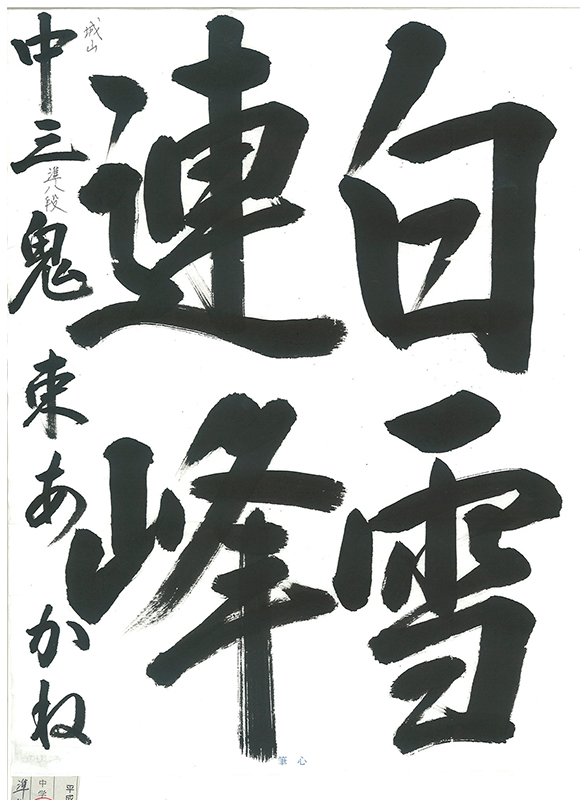 白雪
連峰
中三鬼束あかね
城山
準八段
筆心
平成
中学
準